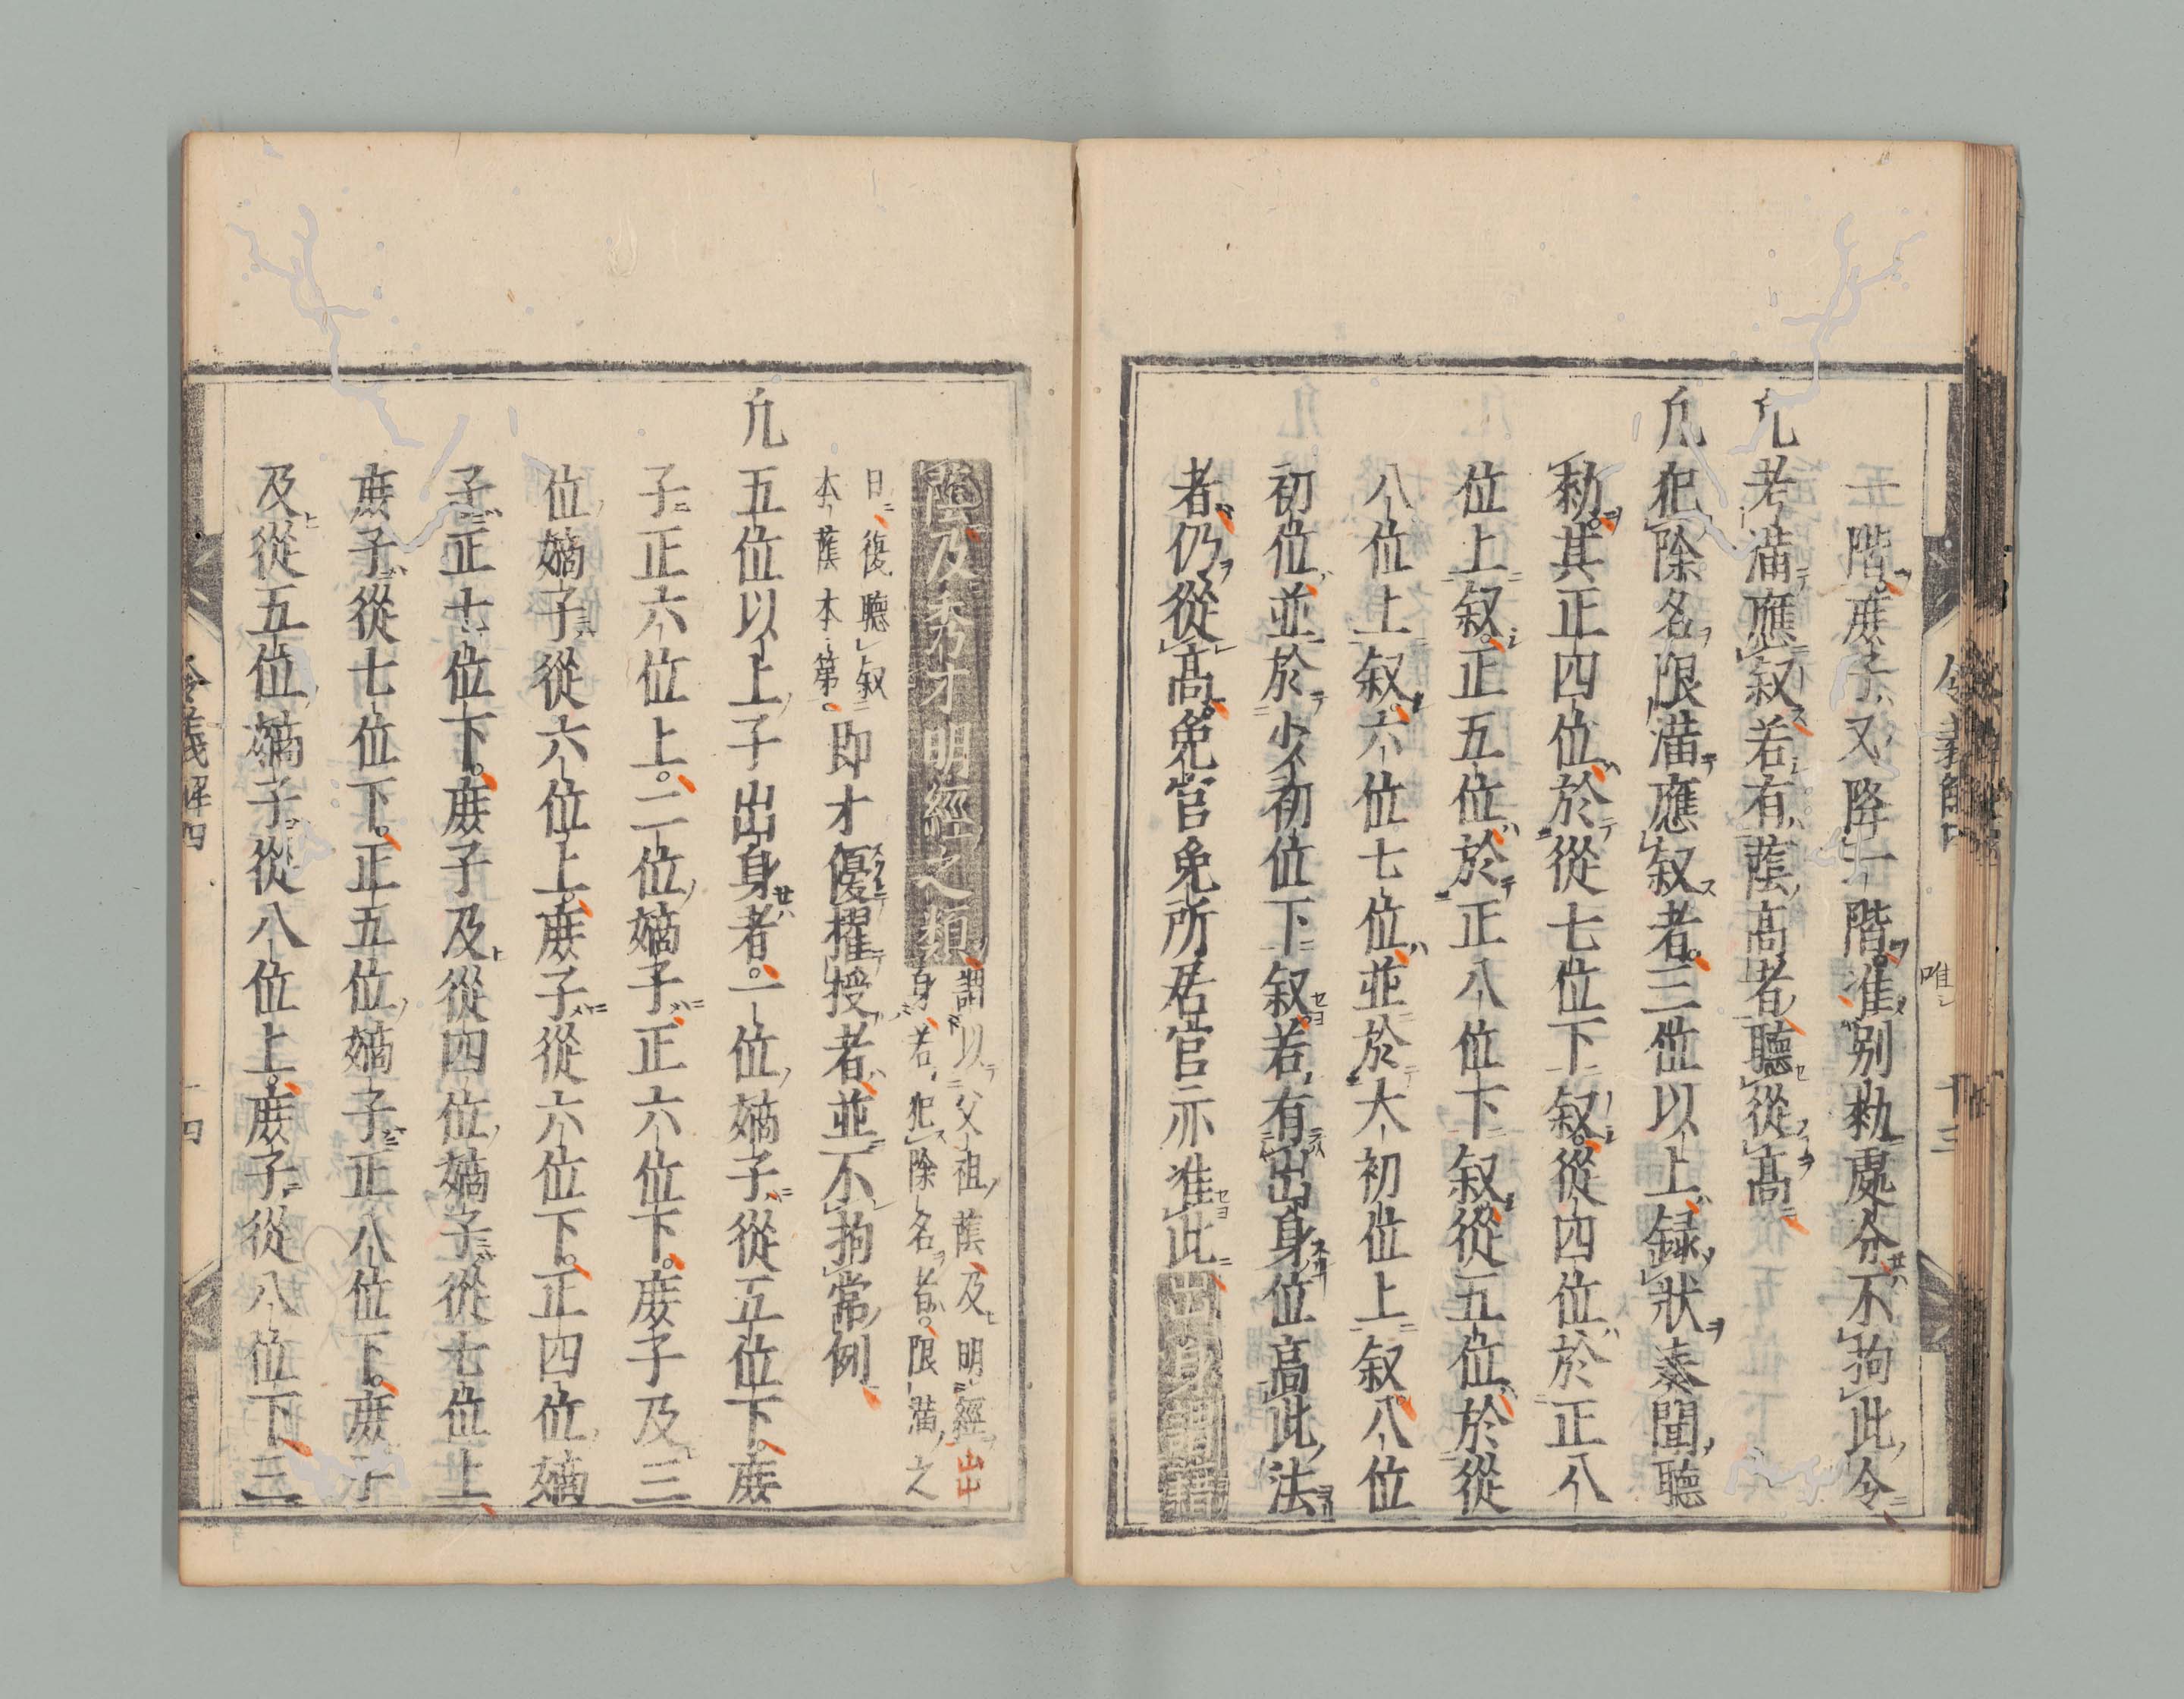 五階。庶子又降一階。准別勅處分不拘此令
凢考満應叙若有蔭高者聽從高
凢犯除名限満應叙者。三位以上錄狀奏聞聽
勅。其正四位於從七位下叙。從四位於正八
位上叙。正五位於正八位下叙從五位於從
八位上叙。六位七位並於大初位上叙八位
初位並於少初位下叙若有出身位高此法
者仍從高。免官免所居官亦准此出身謂藉
令義解四
唯
十三
蔭及秀才明經之類
謂以父祖蔭及明經出
身若犯除名者。限満之
日復聽叙
本蔭本第。
即才優擢授者並不拘常例
凢五位以上子出身者。一位嫡子從五位下。庶
子正六位上。二位嫡子正六位下。庶子及三
位嫡子從六位上。庶子從六位下。正四位嫡
子正七位下。庶子及從四位嫡子從七位上
庶子從七位下。正五位嫡子正八位下。庶子
及從五位嫡子從八位上。庶子從八位下三
令義解四
十四